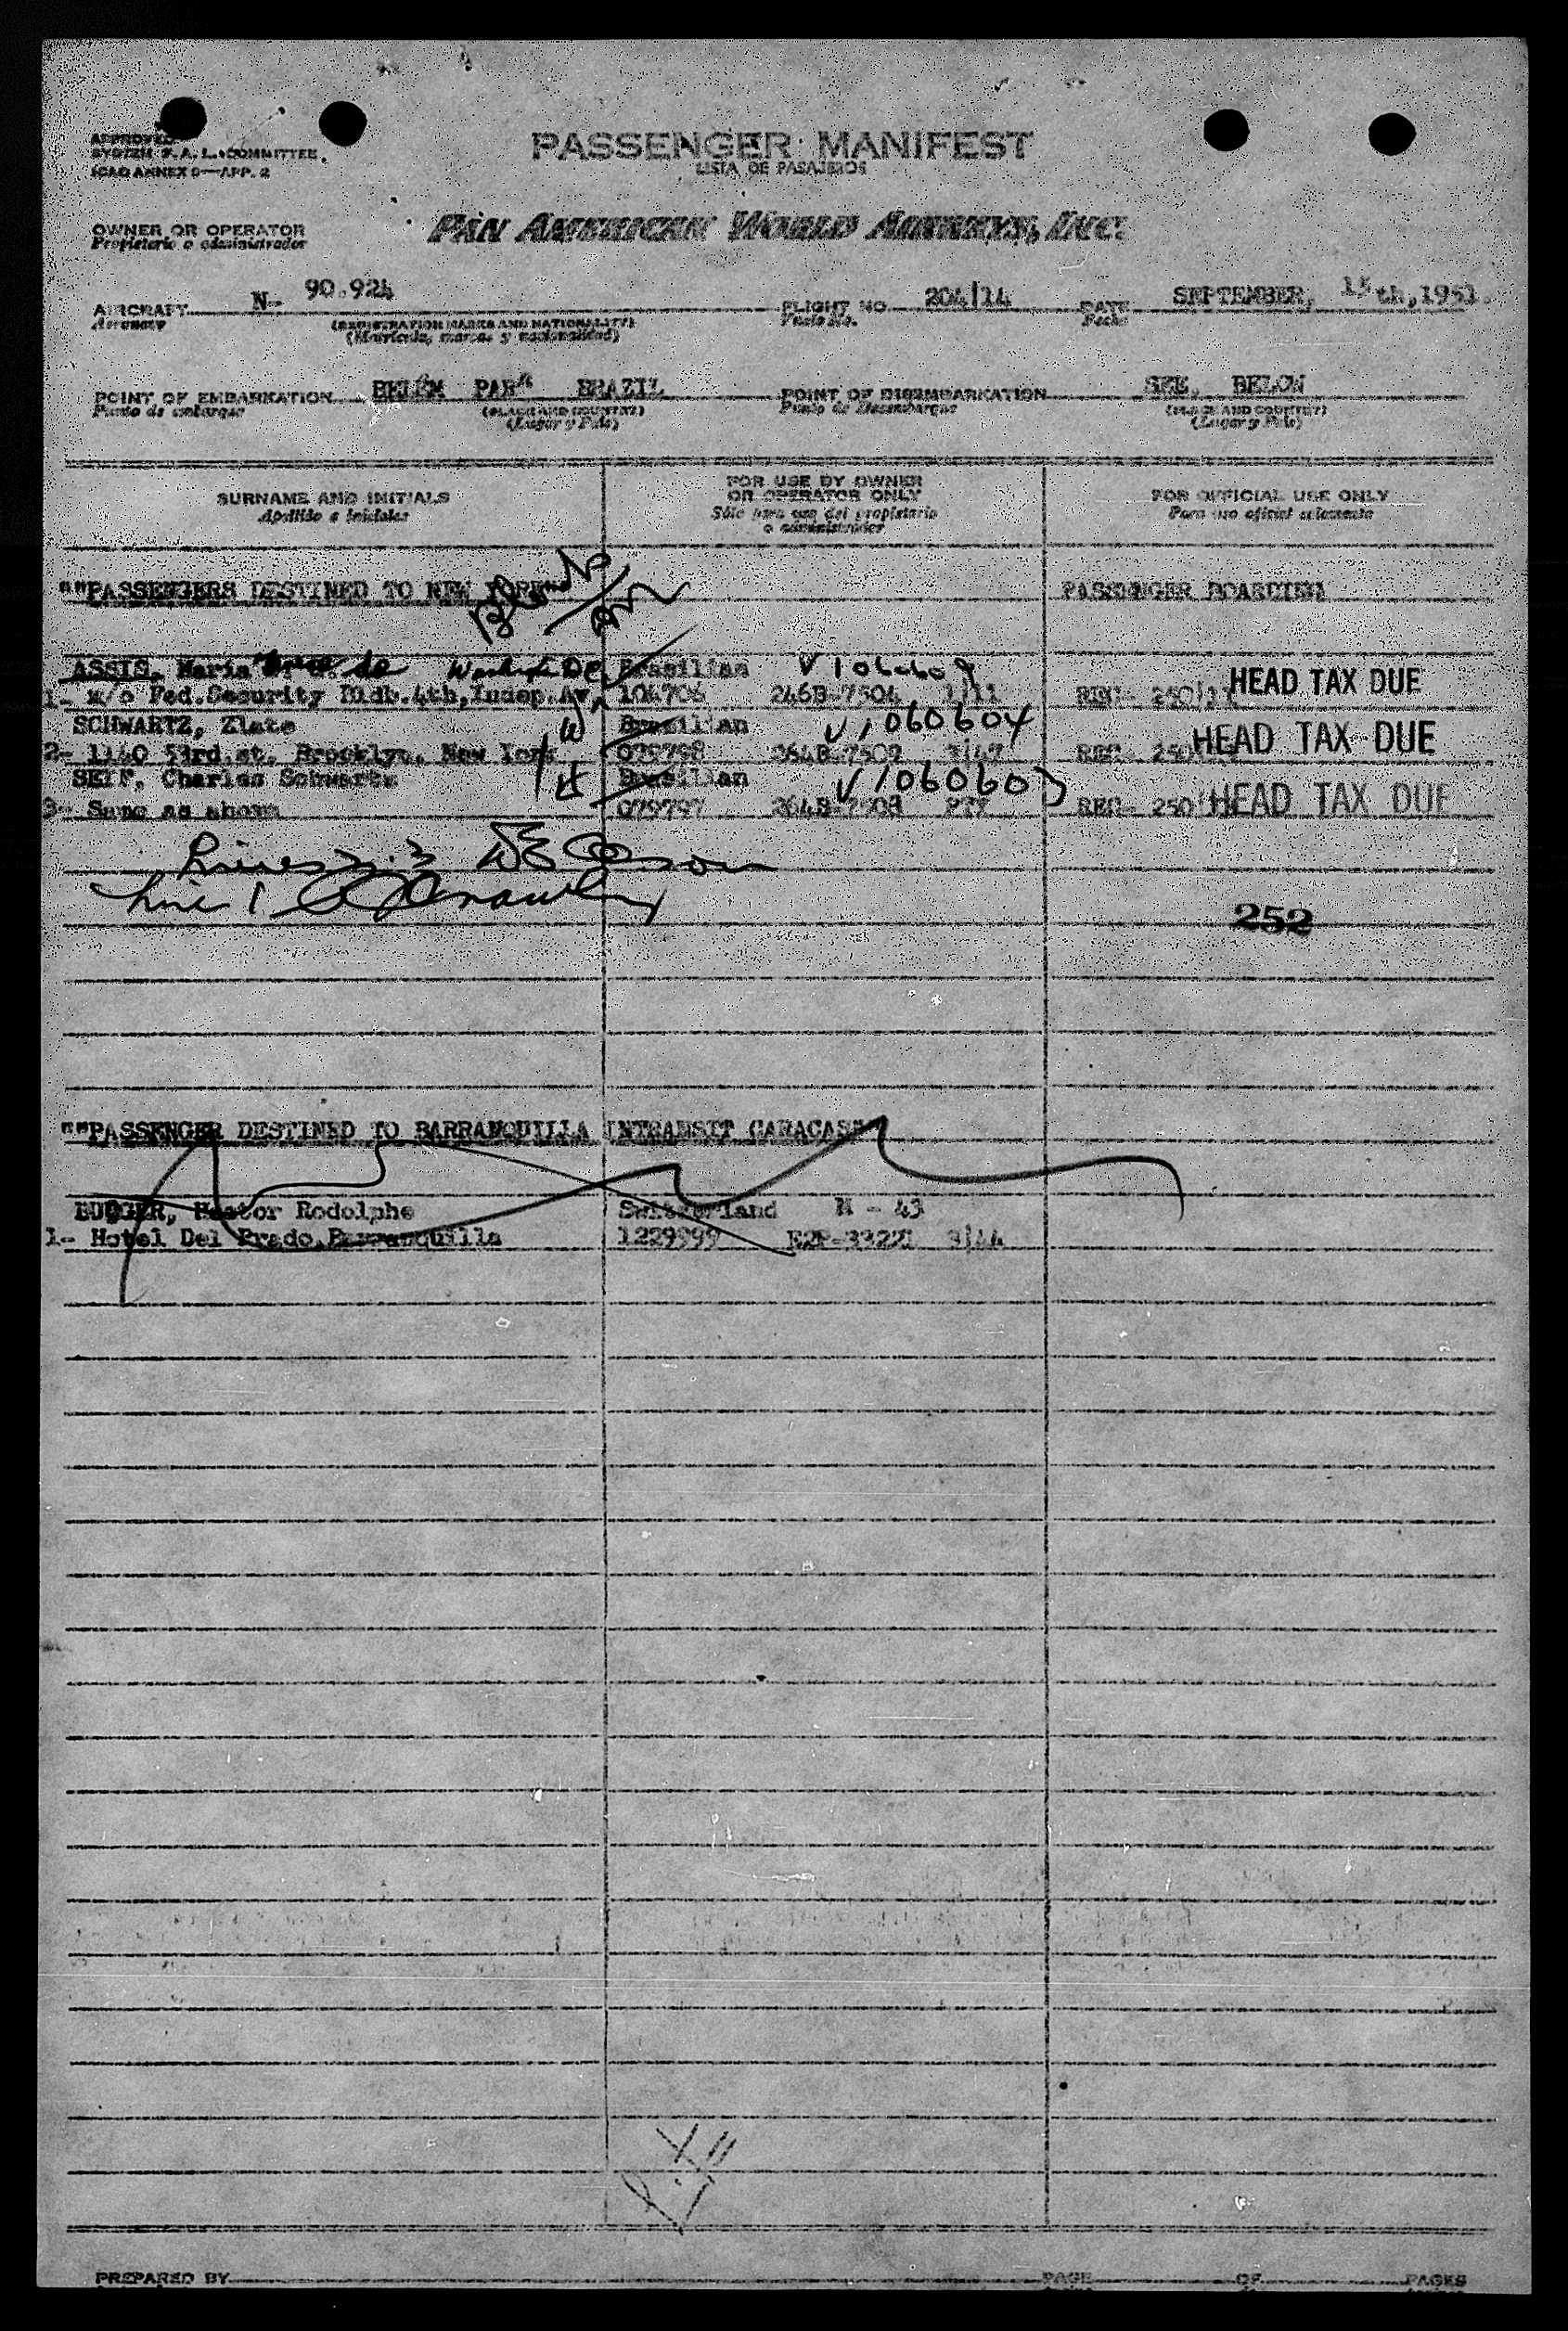 APPROVED
SYSTEM F. A. L. COMMITTEE
ICAO ANNEX 9—APP. 2
PASSENGER MANIFEST
LISTA DE PASAJEROS
OWNER OR OPERATOR
Propietario o administrador
PAN AMERICAN WORLD AIRWAYS, INC.
AIRCRAFT N- 90.924
Aeronave
(REGISTRATION MARKS AND NATIONALITY)
(Matricula, marcas y nacionalidad)
FLIGHT NO. 204/14
Vuelo No.
DATE SEPTEMBER, 15th, 1951.
Fecha
POINT OF EMBARKATION BELEM PARA BRAZIL
Punto de embarque
(PLACE AND COUNTRY)
(Lugar y País)
POINT OF DISEMBARKATION SEE, BELOW
Punto de Desembarque
(PLACE AND COUNTRY)
(Lugar y País)
SURNAME AND INITIALS
Apellido e iniciales
FOR USE BY OWNER
OR OPERATOR ONLY
Sólo para uso del propietario
o administrador
FOR OFFICIAL USE ONLY
Para uso oficial solamente
""PASSENGERS DESTINED TO NEW YORK"" PASSENGER BOARDING
ASSIS, Maria de Brasilian V1060609
1- x/o Fed.Security Bldb.4th,Indep.Av, 104706 246B-7504 1/11 REC- 250 HEAD TAX DUE
SCHWARTZ, Zlate Brasilian V1060604
2- 1140 53rd.st. Brooklyn, New York 079798 264B-7509 3/47 REC- 250 HEAD TAX DUE
SEIF, Charles Schwartz Brasilian V1060603
3- Same as above 079797 264B-7508 REC- 250 HEAD TAX DUE
Lines 2.3
Line 1
252
""PASSENGER DESTINED TO BARRANQUILLA INTRANSIT CARACAS""
Rodolphe Switzerland M - 43
1- Hotel Del Prado, Barranquilla 1229999 3/44
PREPARED BY
PAGE OF PAGES